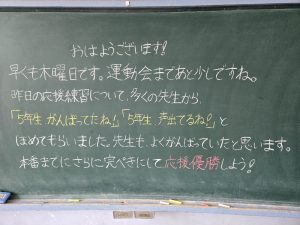 おはようございます!
早くも木曜日です。運動会まであと少しですね。
昨日の応援練習について、多くの先生から、
「5年生がんばってたね!」「5年生、声出てるね!」と
ほめてもらいました。先生も、よくがんばっていたと思います。
本番までにさらに完ぺきにして応援優勝しよう!